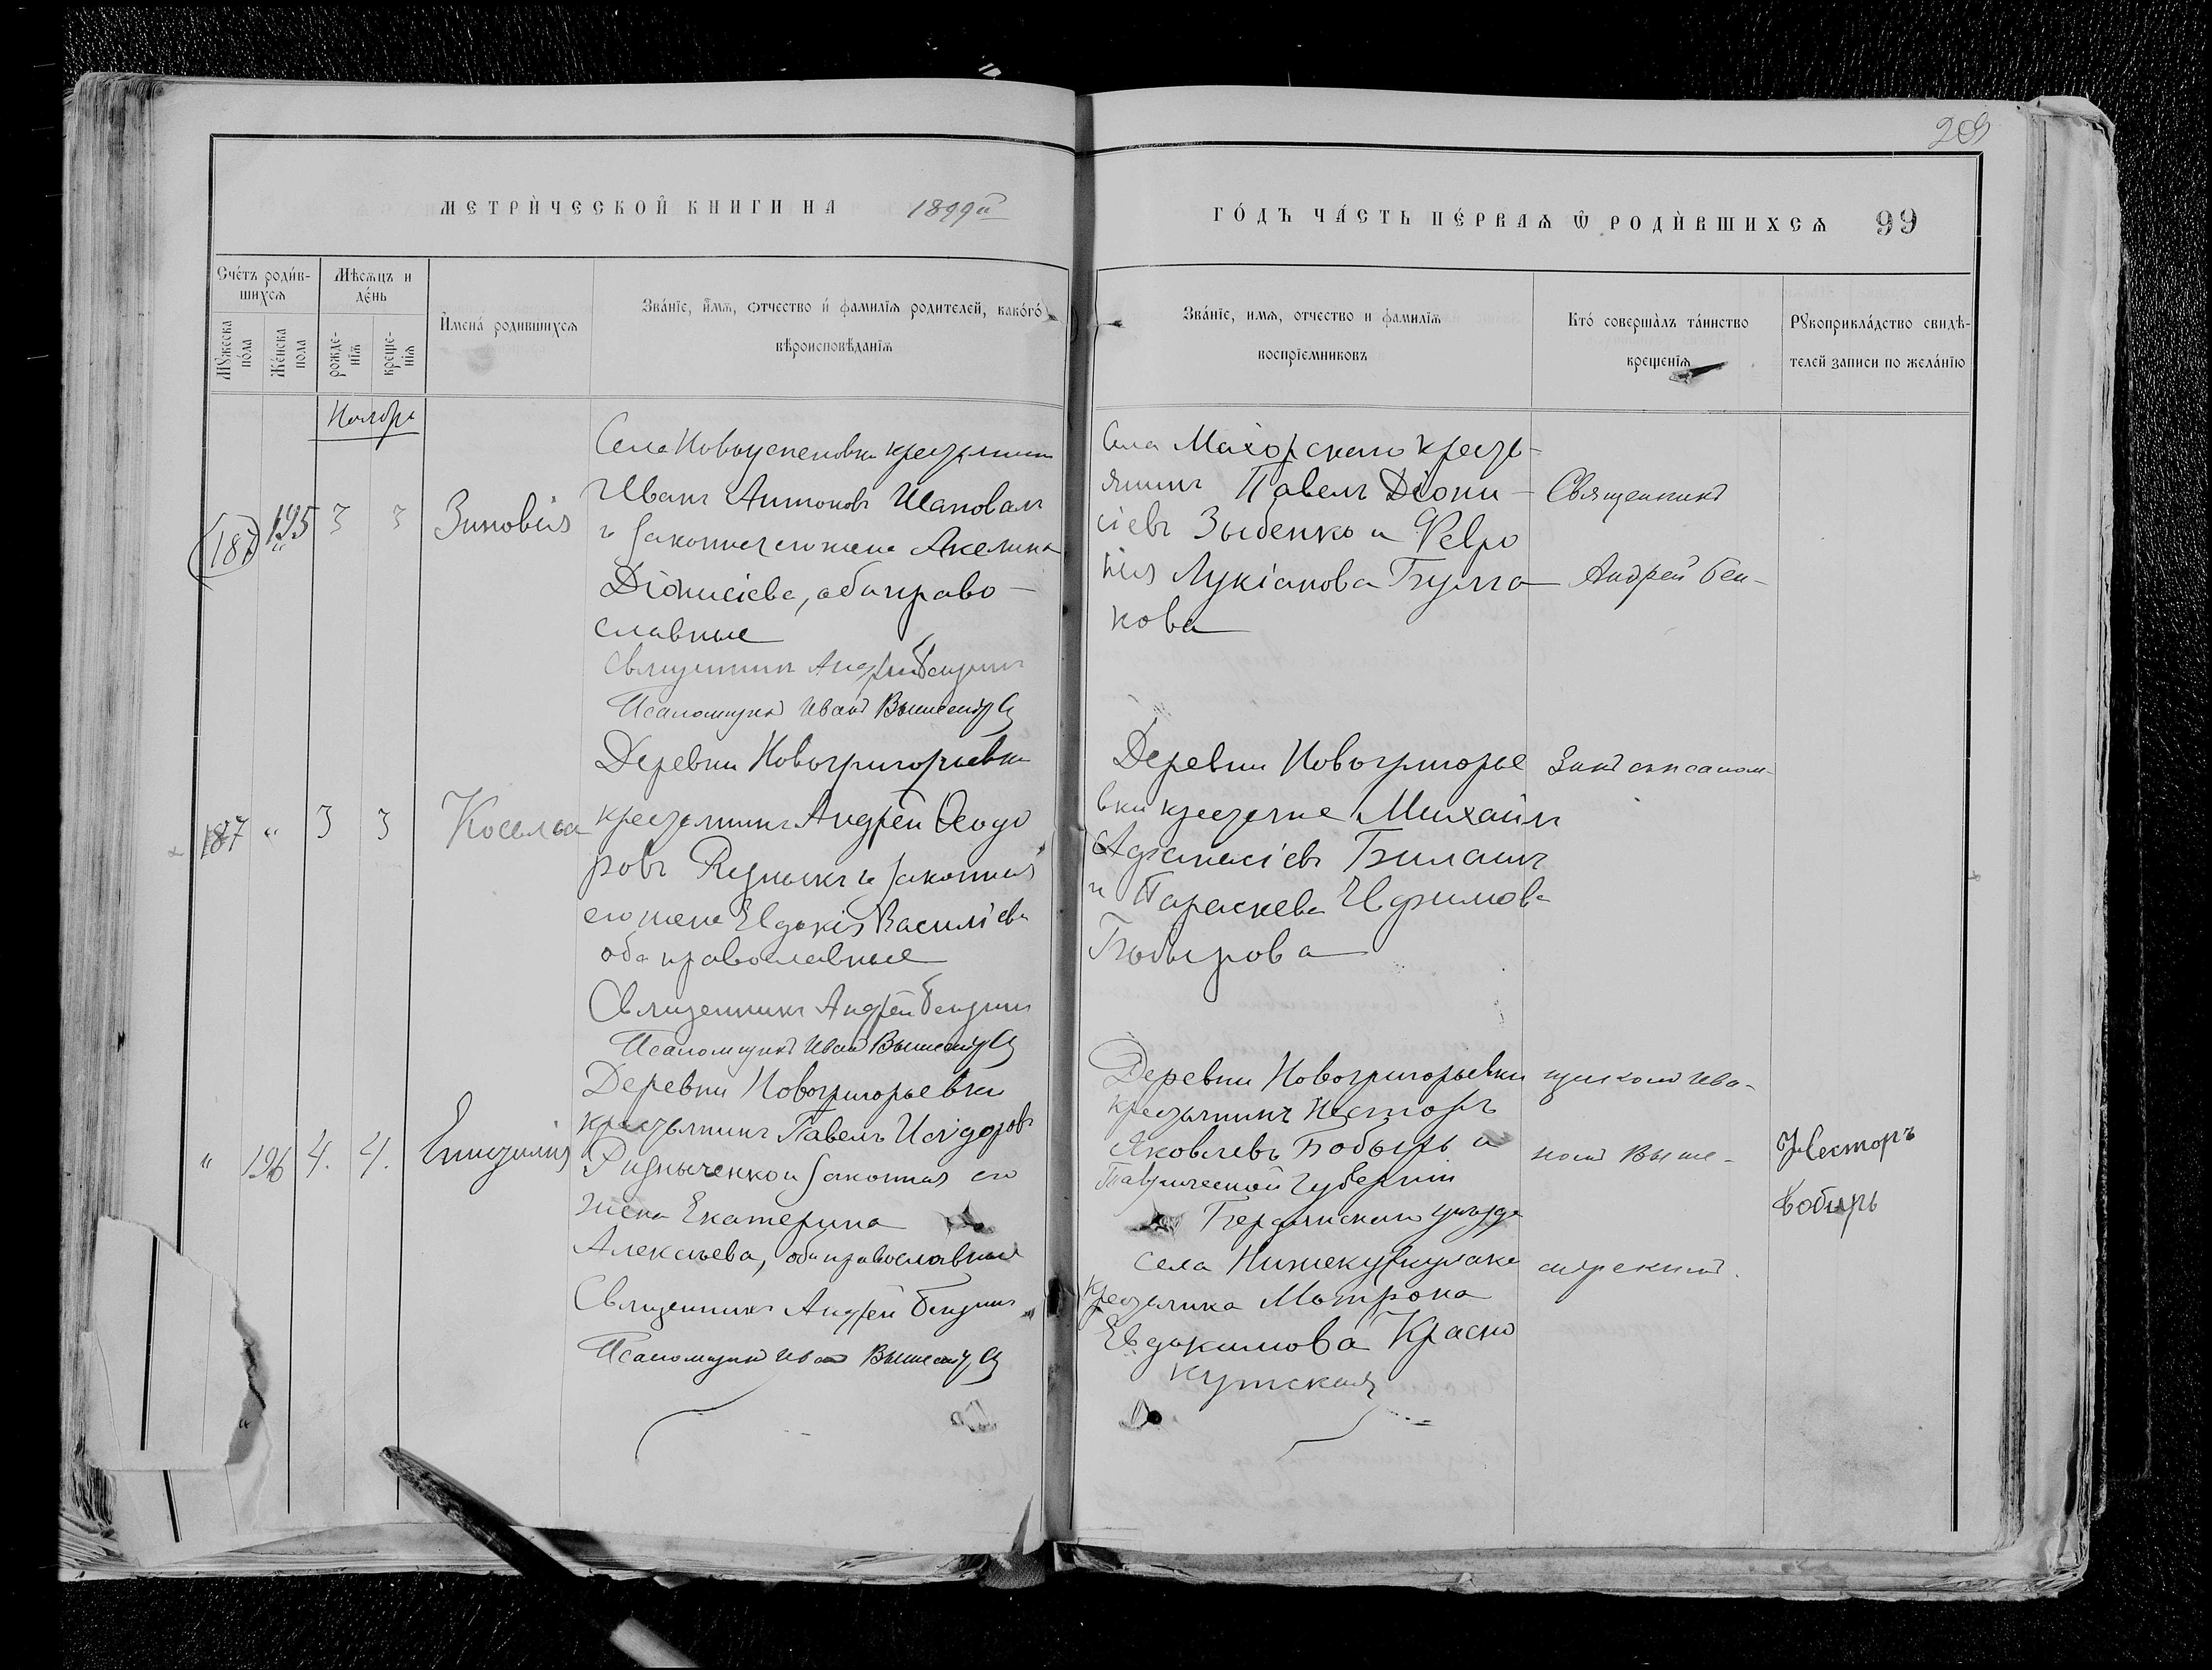 209
МЕТРИ́ЧЕСКОЙ КНИГИ НА 1899й
ГО́ДЪ ЧА́СТЬ ПЕ́РВАѦ Ѿ РОДИ́ВШИХСѦ 99
Сче́тъ роди́в-
шихсѧ
Мꙋ́жеска
по́ла
Же́нска
пола
Мѣ́сѧцъ и
де́нь
рожде-
нїѧ
креще-
нїѧ
И҆мена́ роди́вшихсѧ
Зва́нїе, и҆́мѧ, ѻтчество и҆ фамилїѧ родителей, како́го
вѣроисповѣ́данїѧ
Зва́нїе, имѧ, отчество и фамилїѧ
воспрїемниковъ
Кто́ соверша́лъ та́инство
крещенїѧ
Рꙋкоприкла́дство свидѣ́-
телей записи по жела́нїю
Ноябрь
(187) 195 3 3 Зиновія
Села Новоуспеновки крестьянинъ
Иванъ Антоновъ Шаповалъ
и законная его жена Акелина
Діонисіева, оба право-
славные
Священникъ Андрей
Псаломщикъ Иванъ
Села Маіорскаго кресть-
янинъ Павелъ Діони-
сіевъ Зыбенко и Февро
нія Лукіанова Булга
кова
Священникъ
Андрей Бен-
187 " 3 3
Деревни Новогригорьевки
крестьянинъ Андрей Ѳеодо
ровъ и законная
его жена Евдокія Василіева
оба православные
Священникъ Андрей
Псаломщикъ Иванъ
Деревни Новогригорье
вки крестьяне Михаилъ
Афанасіевъ Биланъ
и Параскева Ефимова
Бобырова
зинъ съ псалом-
" 196 4. 4.
Деревни Новогригорьевки
крестьянинъ Павелъ Исидоровъ
Ридныченко и законная его
жена Екатерина
Алексѣева, оба православные
Священникъ Андрей
Псаломщикъ Иванъ
Деревни Новогригорьевки
крестьянинъ Несторъ
Яковлевъ Бобырь и
Таврической губерніи
Бердянскаго уѣзда
села
крестьянка Матрона
Евдокимова Красно
кутская
щикомъ Ива-
номъ Выше-
Несторъ
Бобирь